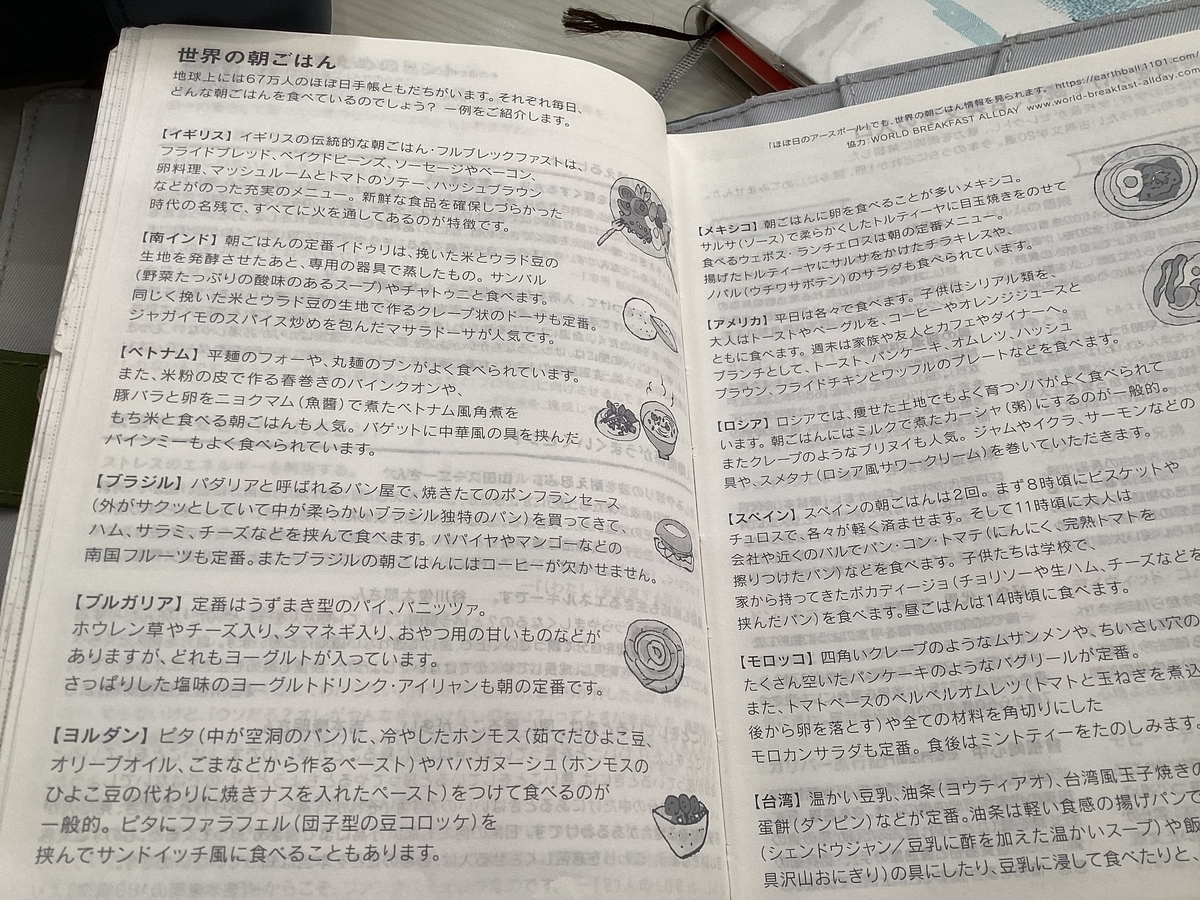 世界の朝ごはん
地球上には67万人のほぼ日手帳ともだちがいます。それぞれ毎日、
どんな朝ごはんを食べているのでしょう? 一例をご紹介します。
【イギリス】イギリスの伝統的な朝ごはん・フルブレックファストは、
フライドブレッド、ベイクドビーンズ、ソーセージやベーコン、
卵料理、マッシュルームとトマトのソテー、ハッシュブラウン
などがのった充実のメニュー。新鮮な食品を確保しづらかった
時代の名残で、すべてに火を通してあるのが特徴です。
【南インド】朝ごはんの定番イドゥリは、挽いた米とウラド豆の
生地を発酵させたあと、専用の器具で蒸したもの。サンバル
(野菜たっぷりの酸味のあるスープ)やチャトゥニと食べます。
同じく挽いた米とウラド豆の生地で作るクレープ状のドーサも定番。
ジャガイモのスパイス炒めを包んだマサラドーサが人気です。
【ベトナム】平麺のフォーや、丸麺のブンがよく食べられています。
また、米粉の皮で作る春巻きのバインクオンや、
豚バラと卵をニョクマム(魚醬)で煮たベトナム風角煮を
もち米と食べる朝ごはんも人気。バゲットに中華風の具を挟んだ
バインミーもよく食べられています。
【ブラジル】パダリアと呼ばれるパン屋で、焼きたてのポンフランセース
(外がサクッとしていて中が柔らかいブラジル独特のパン)を買ってきて、
ハム、サラミ、チーズなどを挟んで食べます。パパイヤやマンゴーなどの
南国フルーツも定番。またブラジルの朝ごはんにはコーヒーが欠かせません。
【ブルガリア】定番はうずまき型のパイ、バニッツァ。
ホウレン草やチーズ入り、タマネギ入り、おやつ用の甘いものなどが
ありますが、どれもヨーグルトが入っています。
さっぱりした塩味のヨーグルトドリンク・アイリャンも朝の定番です。
【ヨルダン】ピタ(中が空洞のパン)に、冷やしたホンモス(茹でたひよこ豆、
オリーブオイル、ごまなどから作るペースト)やババガヌーシュ(ホンモスの
ひよこ豆の代わりに焼きナスを入れたペースト)をつけて食べるのが
一般的。ピタにファラフェル(団子型の豆コロッケ)を
挟んでサンドイッチ風に食べることもあります。
「ほぼ日のアースボール」でも、世界の朝ごはん情報を見られます。 https://earthball.1101.com/
協力:WORLD BREAKFAST ALLDAY www.world-breakfast-allday.com
【メキシコ】朝ごはんに卵を食べることが多いメキシコ。
サルサ(ソース)で柔らかくしたトルティーヤに目玉焼きをのせて
食べるウェボス・ランチェロスは朝の定番メニュー。
揚げたトルティーヤにサルサをかけたチラキレスや、
ノパル(ウチワサボテン)のサラダも食べられています。
【アメリカ】平日は各々で食べます。子供はシリアル類を、
大人はトーストやベーグルを、コーヒーやオレンジジュースと
ともに食べます。週末は家族や友人とカフェやダイナーへ。
ブランチとして、トースト、パンケーキ、オムレツ、ハッシュ
ブラウン、フライドチキンとワッフルのプレートなどを食べます。
【ロシア】ロシアでは、痩せた土地でもよく育つソバがよく食べられて
います。朝ごはんにはミルクで煮たカーシャ(粥)にするのが一般的。
またクレープのようなブリヌイも人気。ジャムやイクラ、サーモンなどの
具や、スメタナ(ロシア風サワークリーム)を巻いていただきます。
【スペイン】スペインの朝ごはんは2回。まず8時頃にビスケットや
チュロスで、各々が軽く済ませます。そして11時頃に大人は
会社や近くのバルでパン・コン・トマテ(にんにく、完熟トマトを
擦りつけたパン)などを食べます。子供たちは学校で、
家から持ってきたボカディージョ(チョリソーや生ハム、チーズなどを
挟んだパン)を食べます。昼ごはんは14時頃に食べます。
【モロッコ】四角いクレープのようなムサンメンや、ちいさい穴の
たくさん空いたパンケーキのようなバグリールが定番。
また、トマトベースのベルベルオムレツ(トマトと玉ねぎを煮込
後から卵を落とす)や全ての材料を角切りにした
モロカンサラダも定番。食後はミントティーをたのしみます。
【台湾】温かい豆乳、油条(ヨウティアオ)、台湾風玉子焼きの
蛋餅(ダンピン)などが定番。油条は軽い食感の揚げパンで
(シェンドウジャン/豆乳に酢を加えた温かいスープ)や飯
具沢山おにぎり)の具にしたり、豆乳に浸して食べたりと、